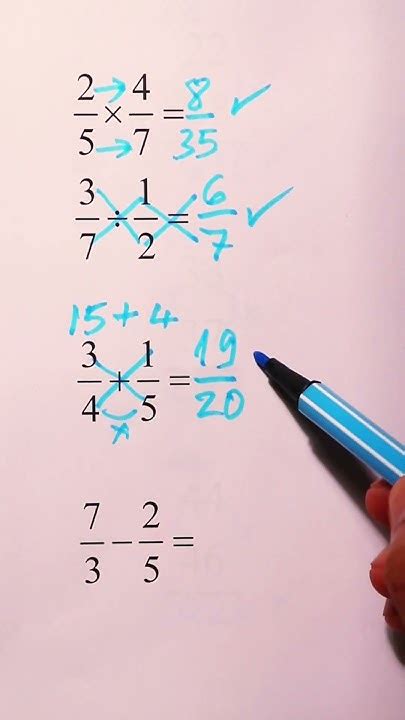 2/5 → → × 4/7 = 8/35 ✓
3/7 ÷ 1/2 = 6/7 ✓
15 + 4
3/4 + 1/5 = 19/20
×
7/3 − 2/5 =